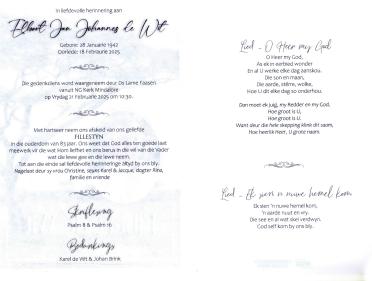 In liefdevolle herinnering aan
Elbert Jan Johannes de Wit
Gebore: 28 Januarie 1942
Oorlede: 18 Februarie 2025
Die gedenkdiens word waargeneem deur Ds Larne Faasen
vanuit NG Kerk Mindalore
op Vrydag 21 Februarie 2025 om 10:30.
Met hartseer neem ons afskeid van ons geliefde
FILLESTYN
In die ouderdom van 83 jaar. Ons weet dat God alles ten goede laat
meewerk vir die wat Hom liefhet en ons berus in die wil van die Vader
wat die lewe gee en die lewe neem.
Tot aan die einde sal liefdevolle herinneringe altyd by ons bly.
Nagelaat deur sy vrou Christine, seuns Karel & Jacque, dogter Rina,
familie en vriende
Skriflesing
Psalm 8 & Psalm 16
Bedankings
Karel de Wit & Johan Brink
Lied - O Heer my God
O Heer my God,
As ek in eerbied wonder
En al U werke elke dag aanskou.
Die son en maan,
Die aarde, sterre, wolke,
Hoe U dit elke dag so onderhou.
Dan moet ek juig, my Redder en my God,
Hoe groot is U,
Hoe groot is U.
Want deur die hele skepping klink dit saam,
Hoe heerlik Heer, U grote naam.
Lied - Ek sien 'n nuwe hemel kom
Ek sien 'n nuwe hemel kom,
'n aarde nuut en vry.
Die see en al wat skei verdwyn.
God self kom by ons bly.